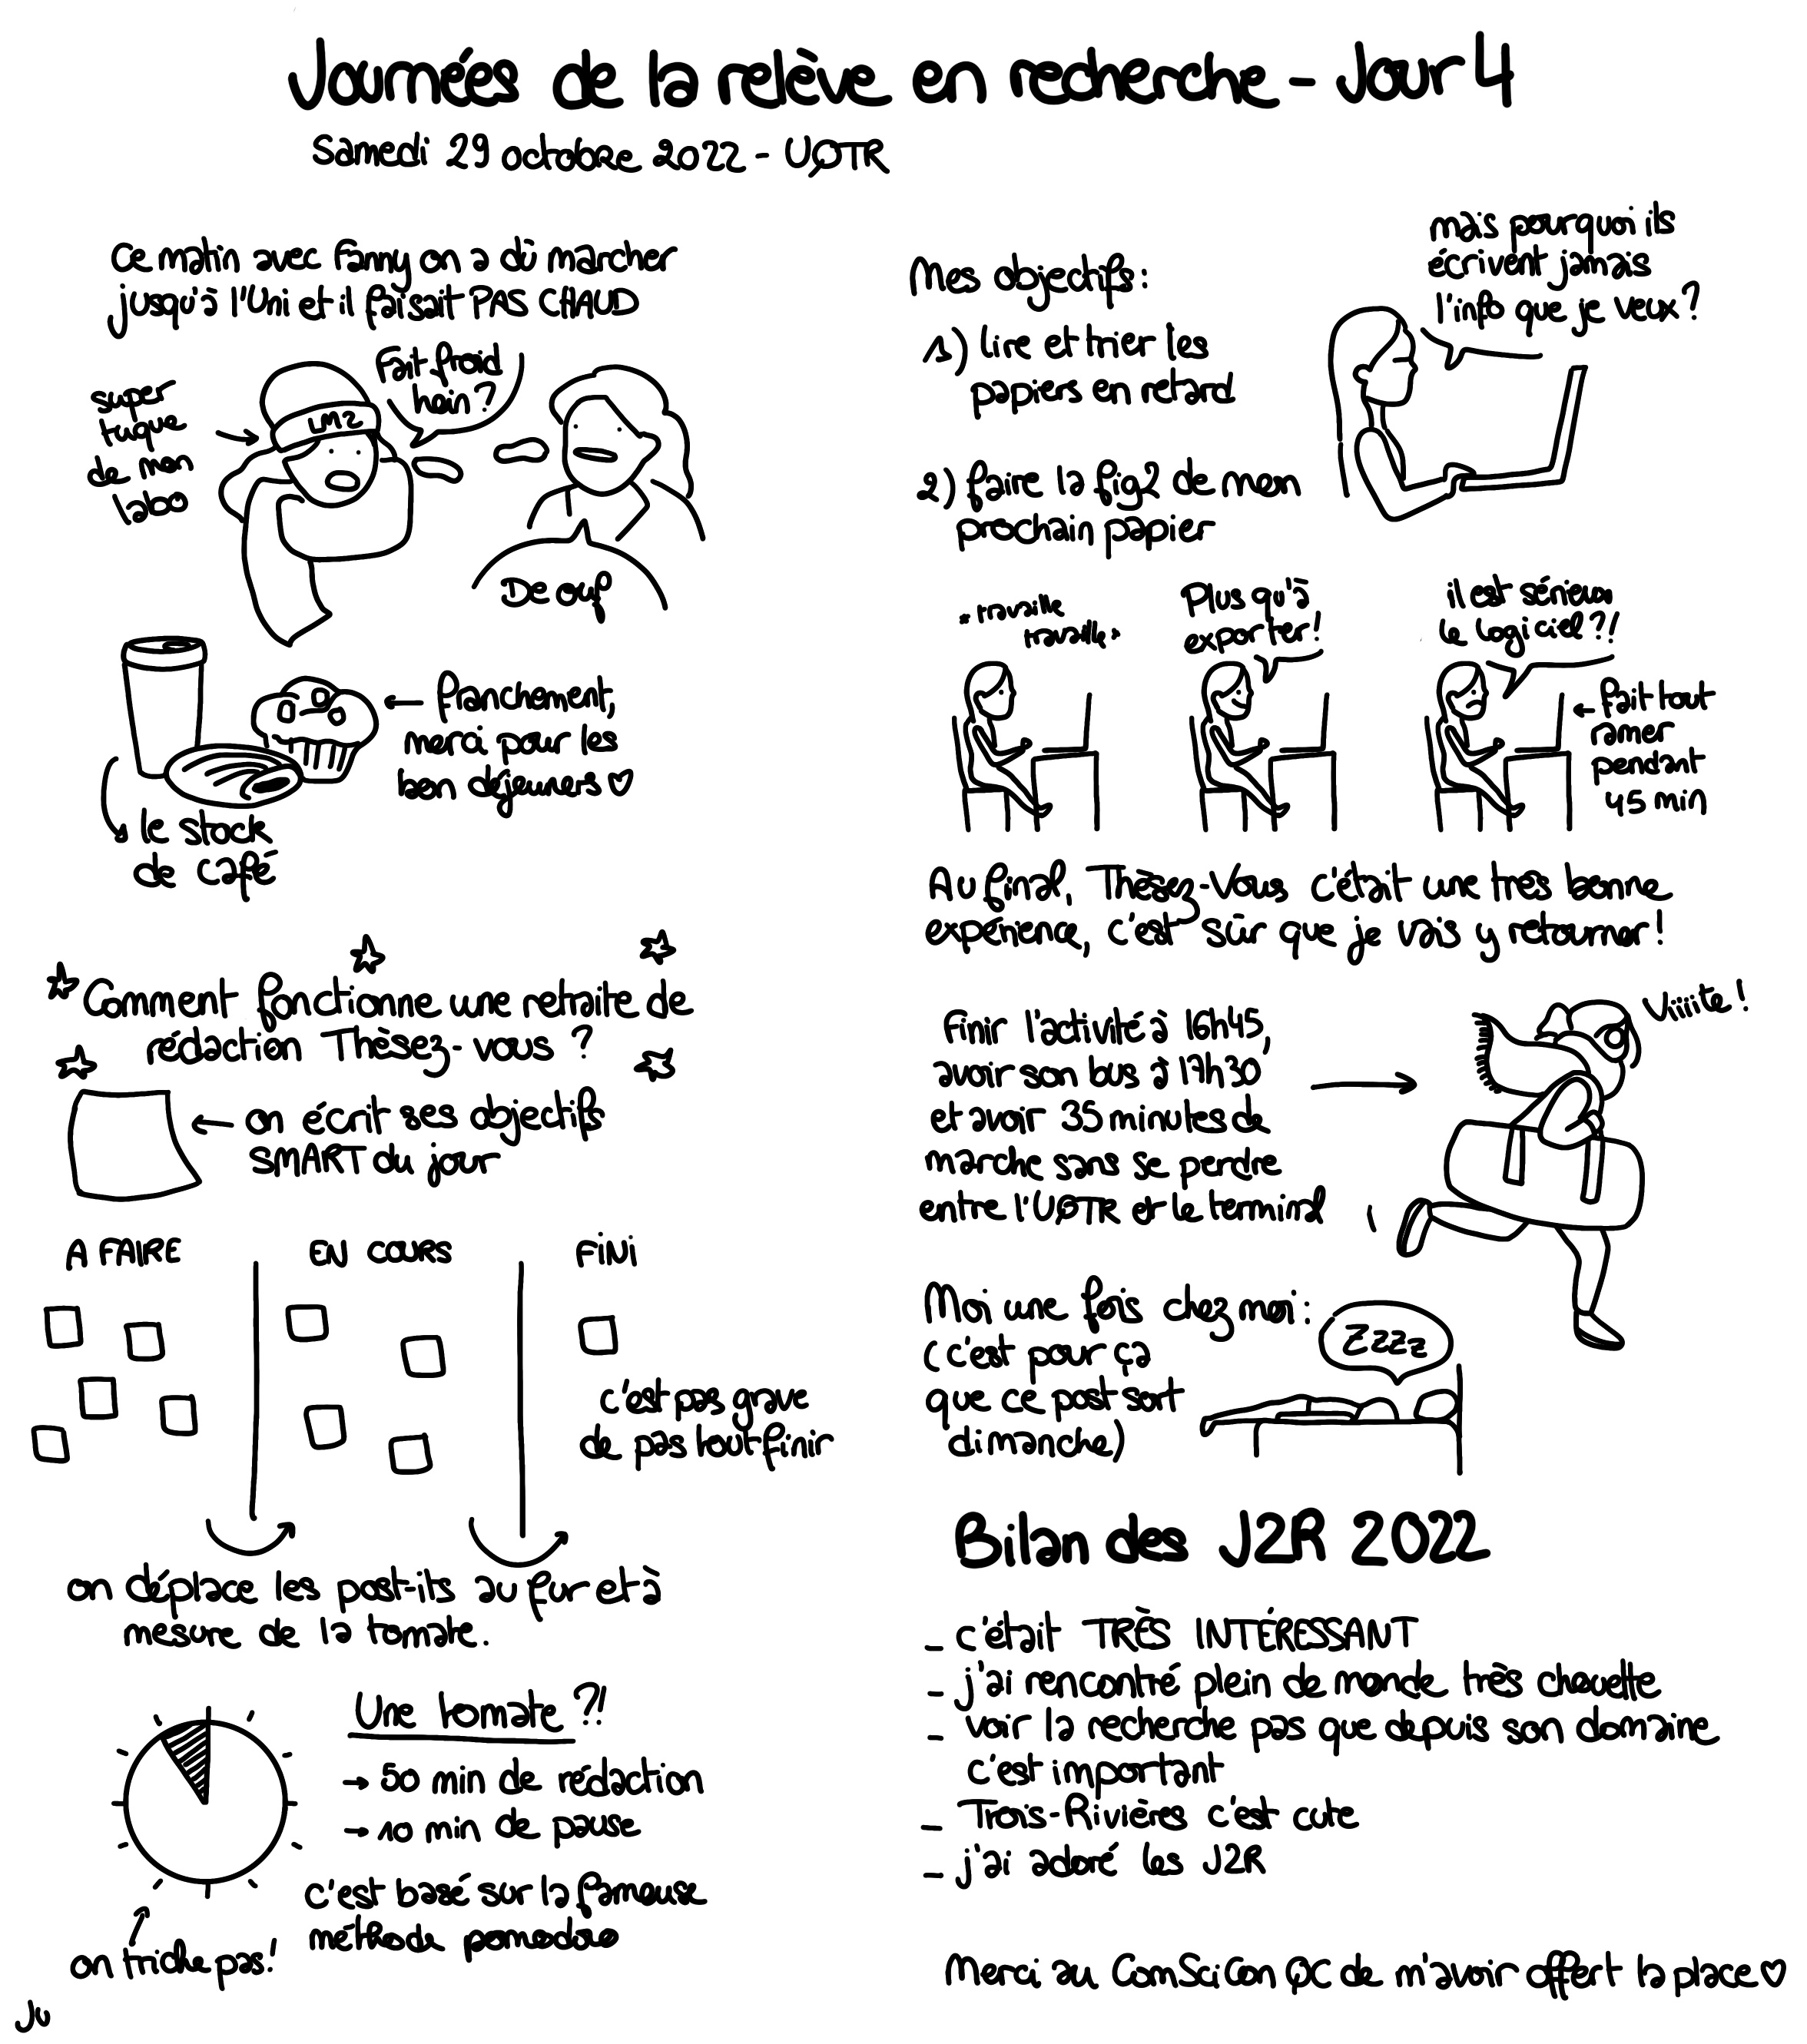 Journées de la relève en recherche - Jour 4
Samedi 29 octobre 2022 - UQTR
Ce matin avec Fanny on a dû marcher
jusqu'à l'Uni et il faisait PAS CHAUD
super
tuque
de mon
labo
LM2
Fait froid
hein ?
De ouf
← franchement,
merci pour les
bon déjeuners ♡
le stock
de café
Comment fonctionne une retraite de
rédaction Thèsez-vous ?
← on écrit ses objectifs
SMART du jour
A FAIRE
EN COURS
FINI
c'est pas grave
de pas tout finir
on déplace les post-its au fur et à
mesure de la tomate.
Une tomate ?!
→ 50 min de rédaction
→ 10 min de pause
c'est basé sur la fameuse
méthode pomodoro
on triche pas !
Ju
Mes objectifs :
1) lire et trier les
papiers en retard
mais pourquoi ils
écrivent jamais
l'info que je veux ?
2) faire la fig2 de mon
prochain papier
* travaille
travaille *
Plus qu'à
exporter !
il est sérieux
le logiciel ?!
← fait tout
ramer
pendant
45 min
Au final, Thèsez-Vous c'était une très bonne
expérience, c'est sûr que je vais y retourner !
Finir l'activité à 16h45,
avoir son bus à 17h30
et avoir 35 minutes de
marche sans se perdre
entre l'UQTR et le terminal
Viiiite !
Moi une fois chez moi :
(c'est pour ça
que ce post sort
dimanche)
Zzzz
Bilan des J2R 2022
- c'était TRÈS INTÉRESSANT
- j'ai rencontré plein de monde très chouette
- voir la recherche pas que depuis son domaine
c'est important
- Trois-Rivières c'est cute
- j'ai adoré les J2R
Merci au ComSciCon QC de m'avoir offert la place ♡